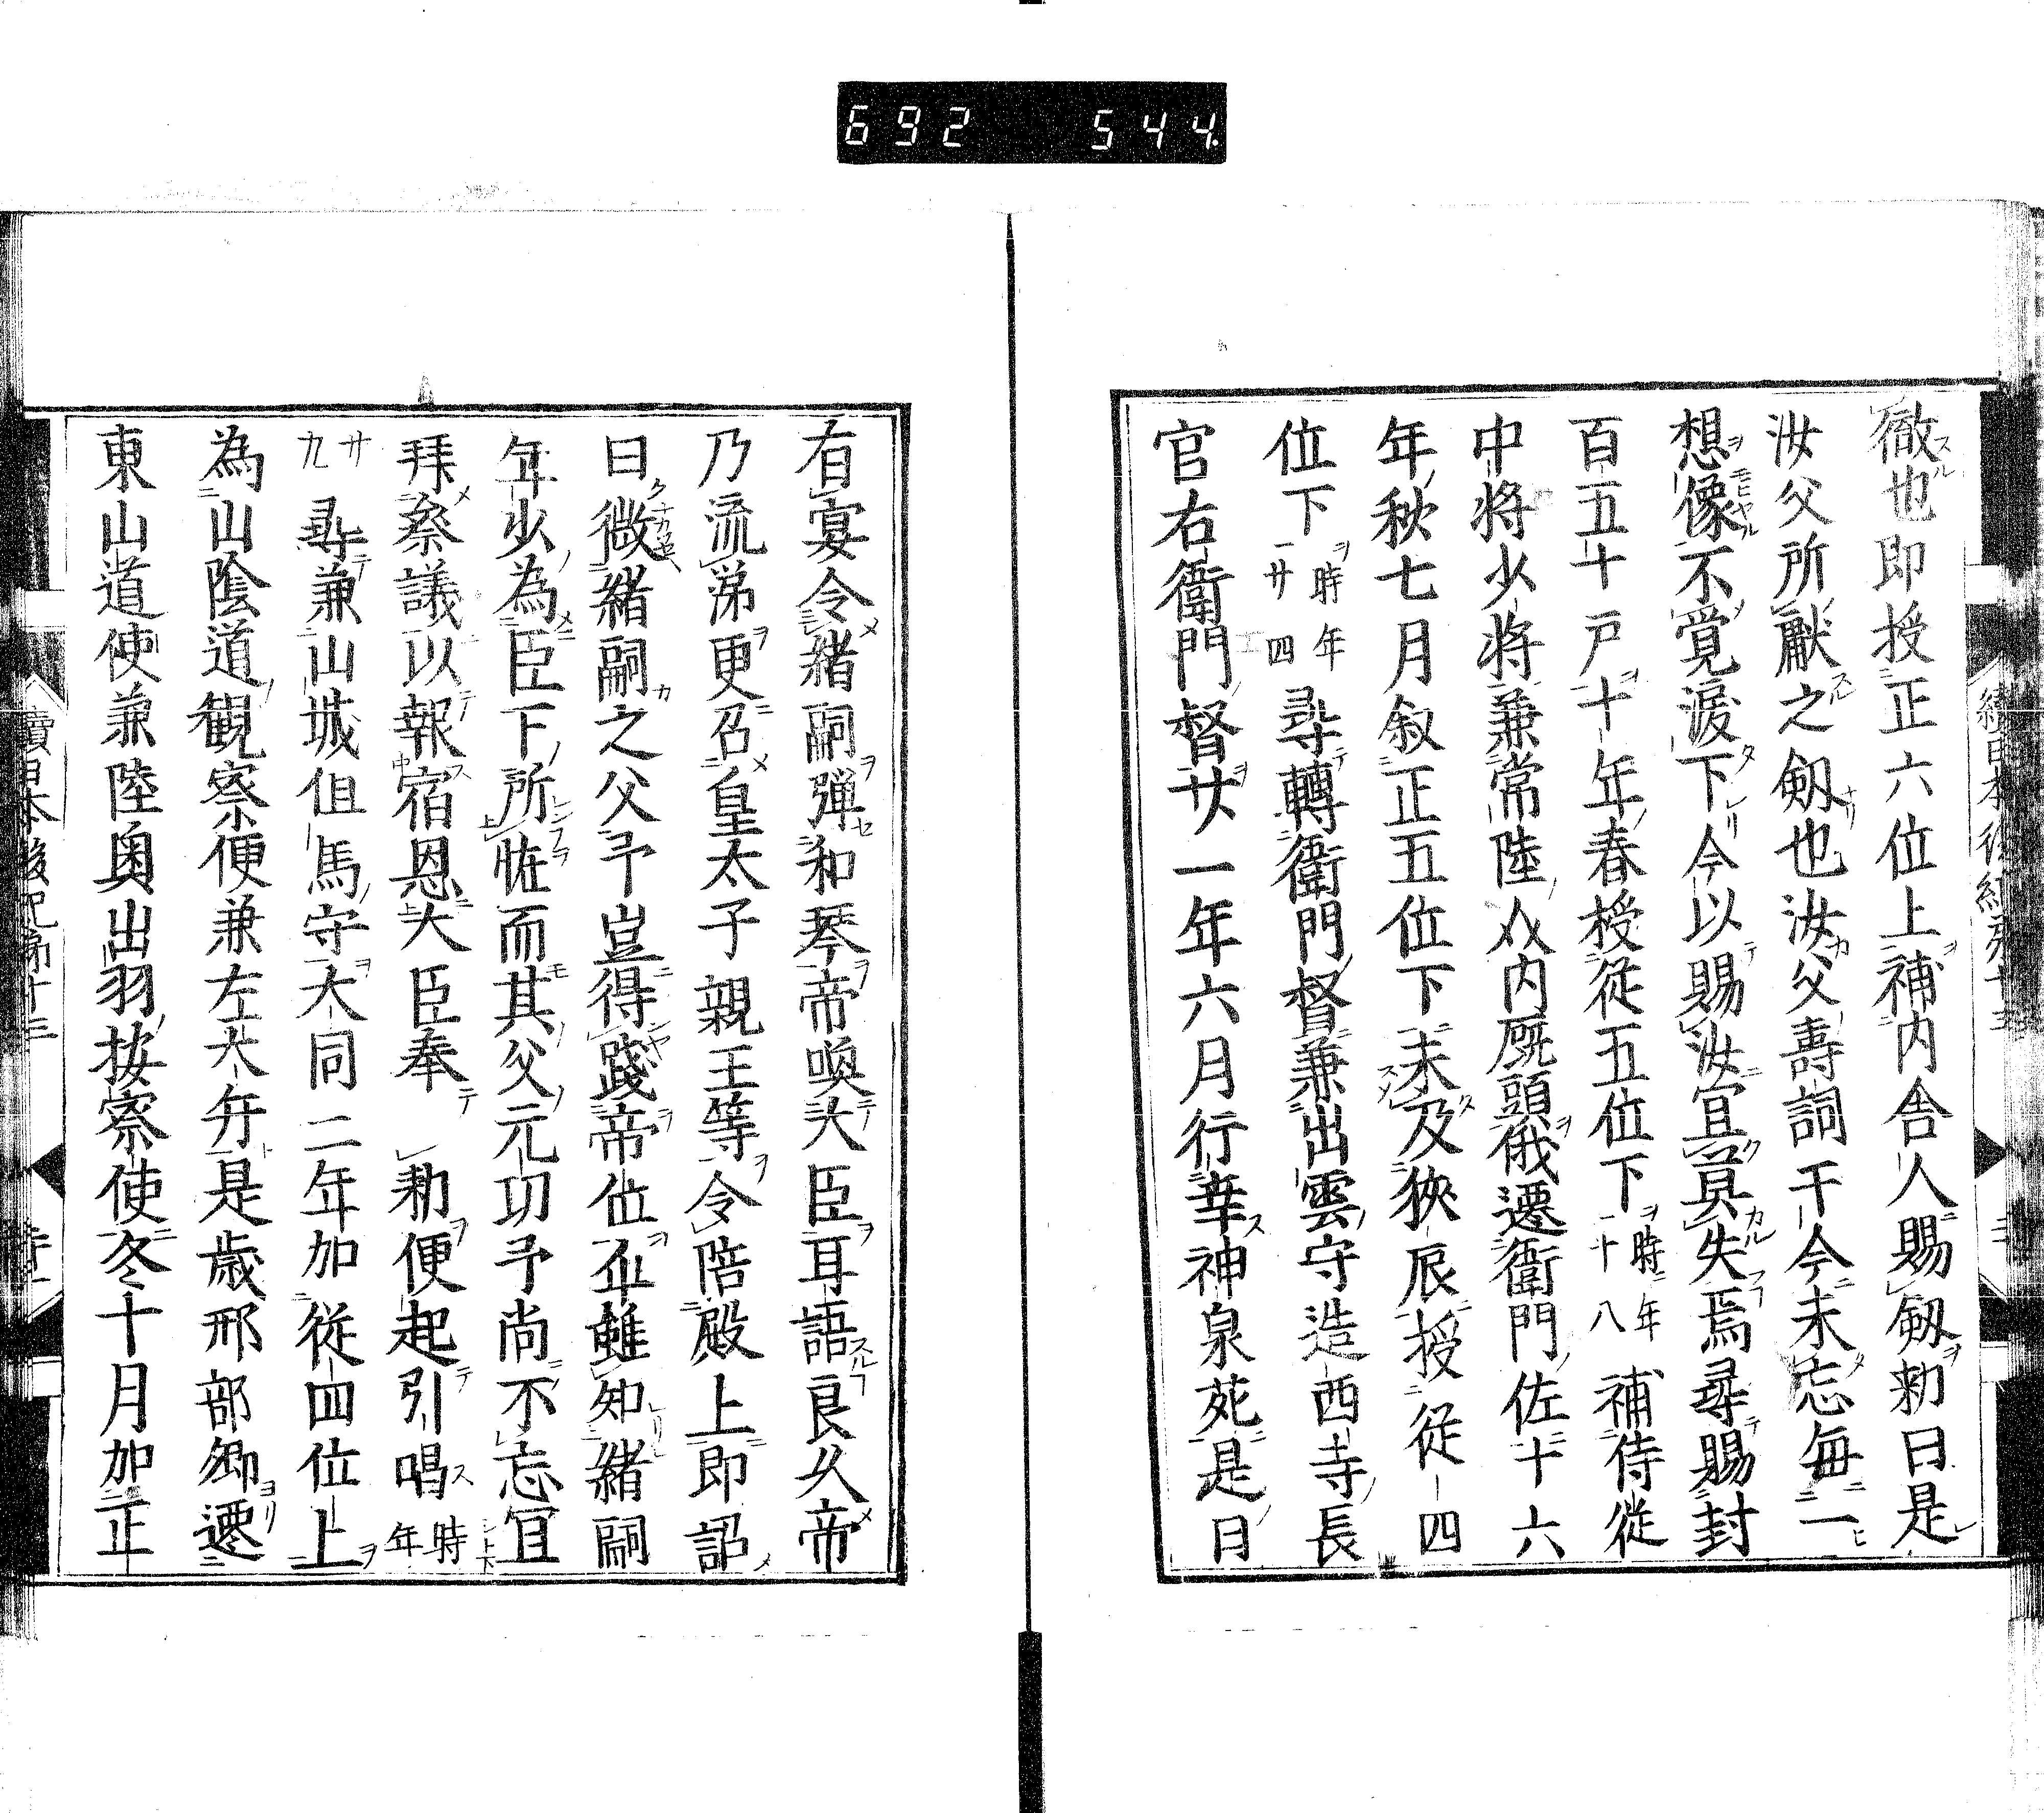 692 544
徹也即授正六位上補内舍人賜劔勅曰是
汝父所獻之劔也汝父壽詞于今未忘毎一
想像不覺涙下今以賜汝宜莫失焉尋賜封
百五十戸十年春授從五位下時年一十八補侍從
中將少將兼常陸介内厩頭俄遷衛門佐十六
年秋七月叙正五位下未及狹辰授從四
位下時年一廿四尋轉衛門督兼出雲守造西寺長
官右衛門督廿一年六月行幸神泉苑是日
有宴令緒嗣彈和琴帝喚大臣耳語良久帝
乃流涕更召皇太子親王等令陪殿上即詔
曰微緒嗣之父予豈得踐帝位乎雖知緒嗣
年少為臣下所恠而其父元功予尚不忘冝
拜叅議以報宿恩大臣奉　勅便起引唱時年
廿九尋兼山城但馬守大同二年加從四位上
為山陰道觀察使兼左大弁是歳刑部卿遷
東山道使兼陸奥出羽按察使冬十月加正
續日本後紀第十三